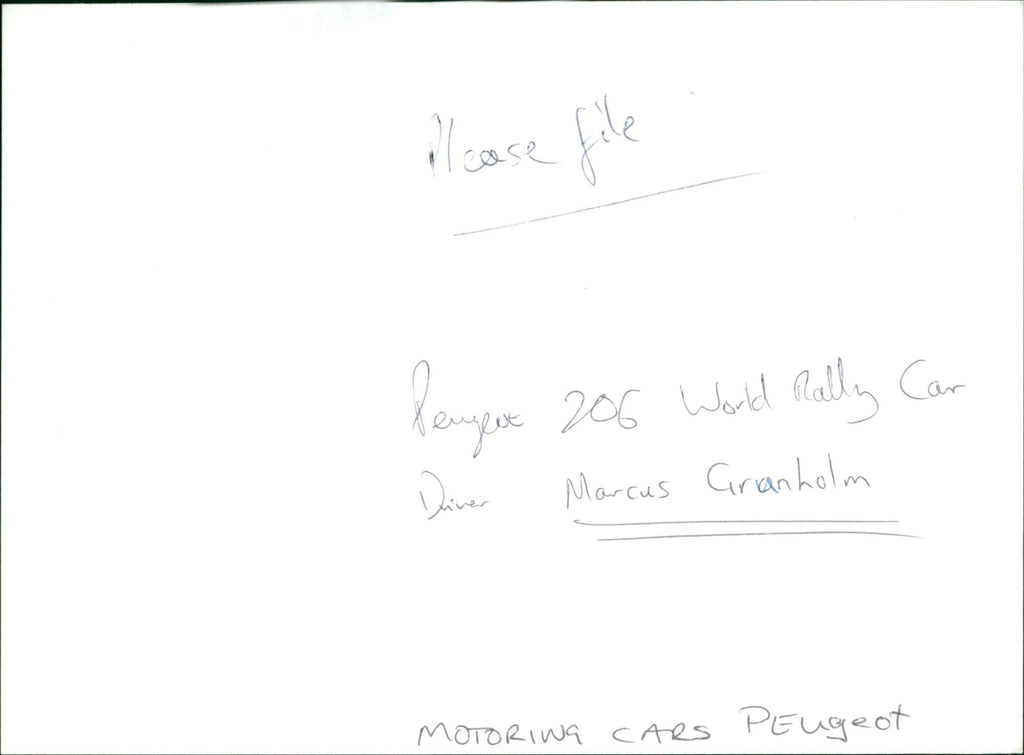 Please file
Peugeot 206 World Rally Car
Driver Marcus Granholm
MOTORING CARS PEugeot